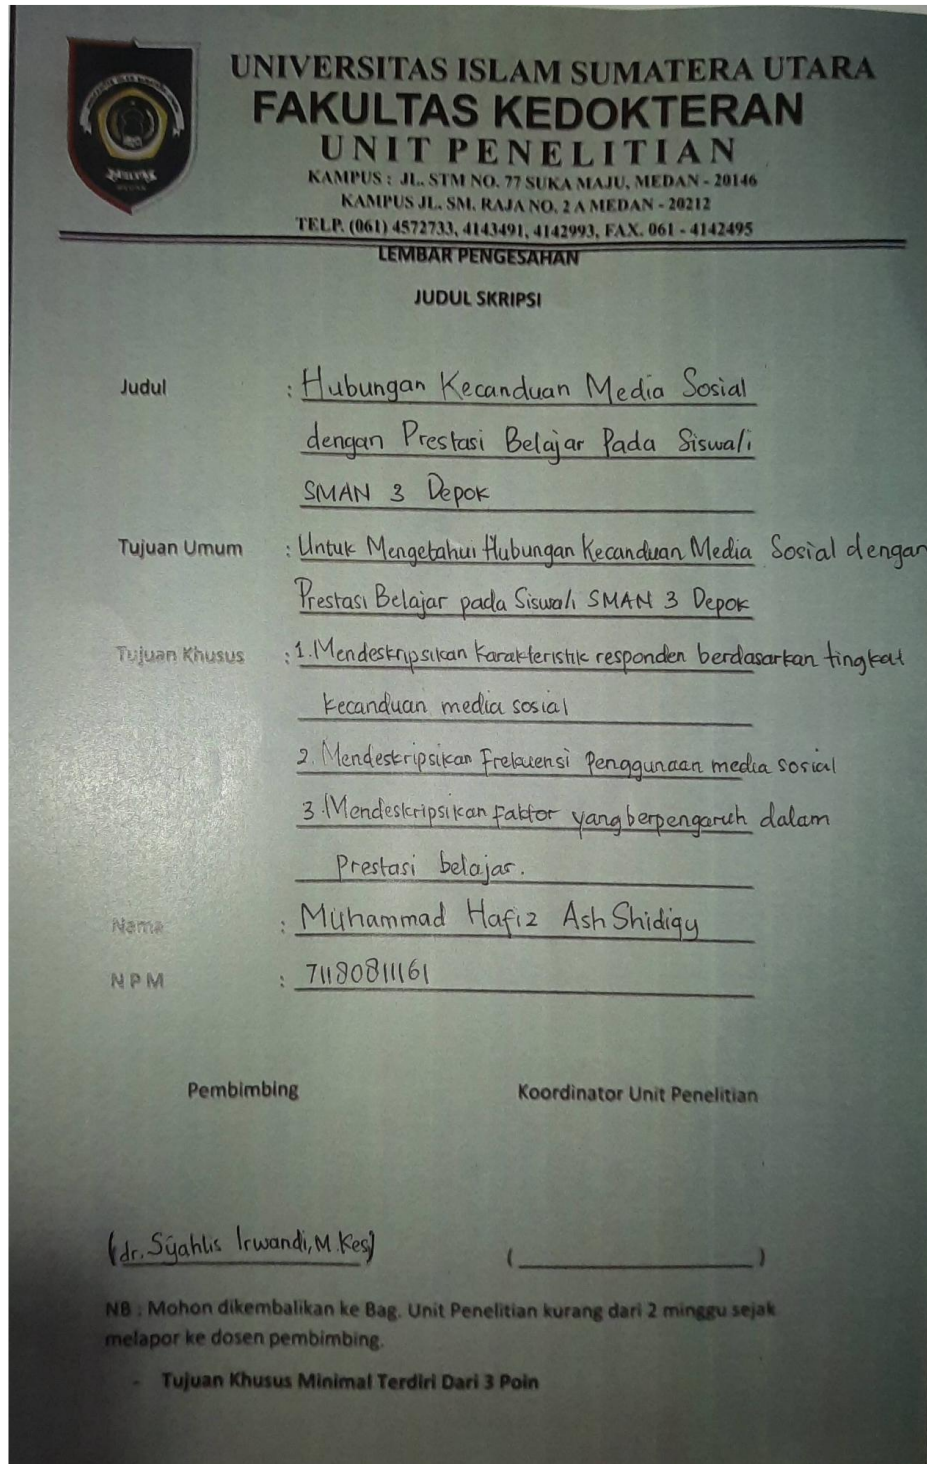 UNIVERSITAS ISLAM SUMATERA UTARA
FAKULTAS KEDOKTERAN
UNIT PENELITIAN
KAMPUS : JL. STM NO. 77 SUKA MAJU, MEDAN - 20146
KAMPUS JL. SM. RAJA NO. 2 A MEDAN - 20212
TELP. (061) 4572733, 4143491, 4142993, FAX. 061 - 4142495
LEMBAR PENGESAHAN
JUDUL SKRIPSI
Judul : Hubungan Kecanduan Media Sosial
dengan Prestasi Belajar Pada Siswa/i
SMAN 3 Depok
Tujuan Umum : Untuk Mengetahui Hubungan Kecanduan Media Sosial dengan
Prestasi Belajar pada Siswa/i SMAN 3 Depok
Tujuan Khusus : 1. Mendeskripsikan Karakteristik responden berdasarkan tingkat
kecanduan media sosial
2. Mendeskripsikan Frekuensi Penggunaan media sosial
3. Mendeskripsikan faktor yang berpengaruh dalam
Prestasi belajar.
Nama : Muhammad Hafiz Ash Shidiqy
NPM : 71180811161
Pembimbing Koordinator Unit Penelitian
(dr. Syahlis Irwandi, M.Kes) ( )
NB : Mohon dikembalikan ke Bag. Unit Penelitian kurang dari 2 minggu sejak
melapor ke dosen pembimbing.
- Tujuan Khusus Minimal Terdiri Dari 3 Poin